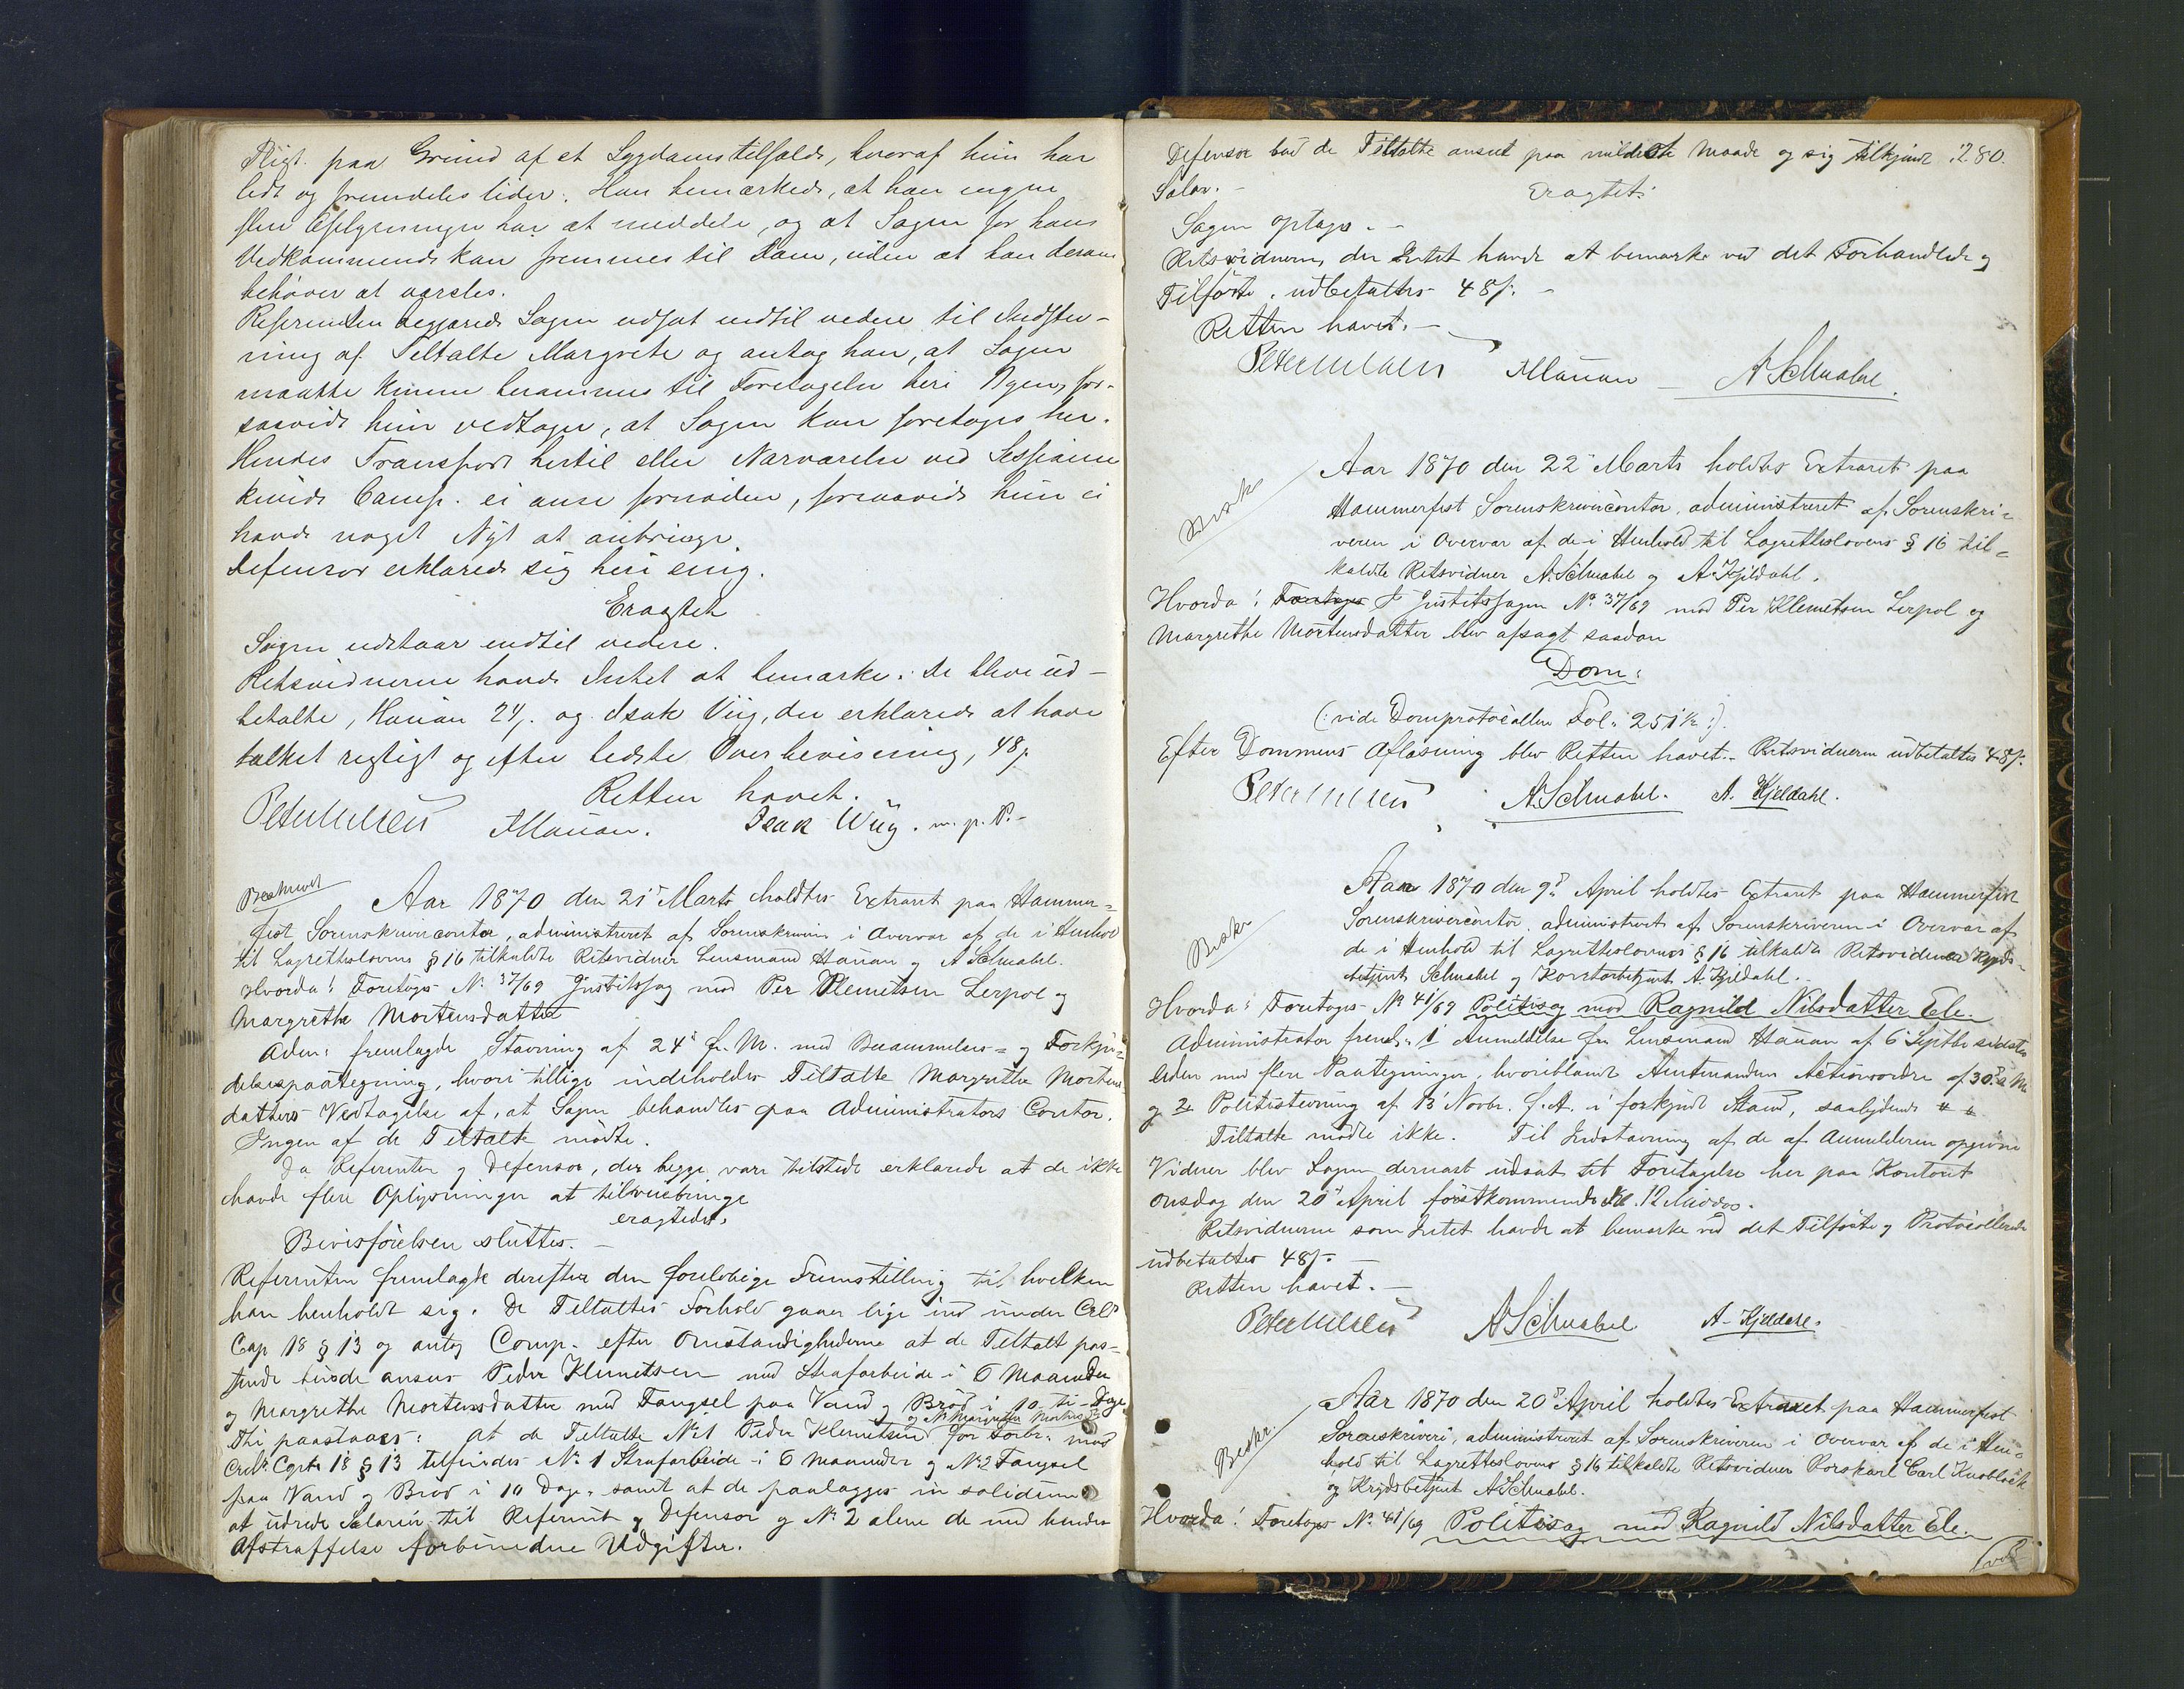 Pligt paa Grund af et Sygdomstilfælde, hvoraf hun har
lidt og fremdeles lider. Han bemærkede, at han ingen
flere Oplysninger har at meddele, og at Sagen for hans
Vedkommende kan fremmes til Dom, uden at han derom
behøver at varsles.
Referenten begjærede Sagen udsat indtil videre til Indstev-
ning af Tiltalte Margrete og antog han, at Sagen
maatte kunne berammes til Foretagelse heri Byen, for-
saavidt hun vedtager, at Sagen kan foretages her.
Hendes Transport hertil eller Nærværelse ved Sessionen
kunde Comp. ei anse fornöden, forsaavidt hun ei
havde noget Nyt at anbringe.
Defensor erklærede sig heri enig.
Eragtet
Sagen udstaar indtil videre.
Retsvidnerne havde Intet at bemærke. De bleve ud-
betalte, Hauan 24 ß. og Isak Wiig, der erklærede at have
tolket rigtigt og efter bedste Overbevisning, 48 ß
Retten hævet.
Peter Nilsen Hauan. Isak Wiig. m. p. P.
Beskrevet
Aar 1870 den 21de Marts holdtes Extraret paa Hammer=
fest Sorenskrivercontor, administreret af Sorenskriveren i Overvær af de i Henhold
til Lagretteslovens § 16 tilkaldte Retsvidner Lensmand Hauan og A Schnabel.
Hvorda: Foretoges No 37/69 Justitssag mod Per Klemetsen Lerpol og
Margrethe Mortensdatter
Adm: fremlagde Stævning af 24de f. M. med Berammelses= og Forkyn=
delsespaategning, hvori tillige indeholdes Tiltalte Margrethe Mortens
datters Vedtagelse af, at Sagen behandles paa Administrators Contor.
Ingen af de Tiltalte mödte.
Da Referenten og Defensor, der begge vare tilstede erklærede at de ikke
havde flere Oplysninger at tilveiebringe
eragtedes
Bevisförelsen sluttes. —
Referenten fremlagde derefter den forelöbige Fremstilling til hvilken
han henholdt sig. De Tiltaltes Forhold gaaer lige ind under Crl
Cap 18 § 13 og antog Comp. efter Omstændighederne at de Tiltalte pas-
sende burde ansees Peder Klemetsen med Strafarbeide i 6 Maaneder
og Margrethe Mortensdatter med Fængsel paa Vand og Bröd i 10 ti Dage
Thi paastaaes: at de Tiltalte No 1 Peder Klemetsen og No 2 Margrethe Mortensd. for Forbr. mod
Crl Capt 18 § 13 tilfindes No 1 Strafarbeide i 6 Maaneder og No 2 Fængsel
paa Vand og Bröd i 10 Dage, samt at de paalægges in solidum
at udrede Salarier til Referent og Defensor og No 2 alene de med hendes
Afstraffelse forbundne Udgifter.
Defensor bad de Tiltalte anseet paa mildeste Maade og sig tilkjendt 280.
Salar. —
Eragtet:
Sagen optages. —
Retsvidnerne, der Intet havde at bemærke ved det Forhandlede og
Tilförte, udbetaltes 48 ß. —
Retten hævet. —
Peter Nilsen Hauan — A Schnabel.
Beskr
Aar 1870 den 22de Marts holdtes Extraret paa
Hammerfest Sorenskrivercontor, administreret af Sorenskri=
veren i Overvær af de i Henhold til Lagretteslovens § 16 til=
kaldte Retsvidner A. Schnabel og A. Kjeldahl.
Hvorda: Foretoges I Justitssagen No 37/69 mod Per Klemetsen Lerpol og
Margrethe Mortensdatter blev afsagt saadan
Dom:
(: vide Domprotocollen Fol: 251 :).
Efter Dommens Aflæsning blev Retten hævet. Retsvidnerne udbetaltes 48 ß.
Peter Nilsen A Schnabel. A. Kjeldahl.
Beskr
Aar 1870 den 9de April holdtes Extraret paa Hammerfest
Sorenskrivercontor, administreret af Sorenskriveren i Overvær af
de i Henhold til Lagretteslovens § 16 tilkaldte Retsvidner Kryds-
betjent Schnabel og Korstarbetjent A. Kjeldahl.
Hvorda: Foretoges No 41/69 Politisag mod Ragnild Nilsdatter Ele.
Administrator freml. 1 Anmeldelse fra Lensmand Hauan af 6 Septbr sidst
leden med flere Paategninger, hvoriblandt Amtmandens Actionsordre af 30. s. M.
og 2 Politistevning af 13 Novbr. f. A. i forkyndt Stand, saalydende " "
Tiltalte mödte ikke. Til Indstævning af de af Anmelderen opgivne
Vidner blev Sagen dernæst udsat til Foretagelse her paa Kontoret
Onsdag den 20de April förstkommende Kl. 12 Middag.
Retsvidnerne som Intet havde at bemærke ved det Tilförte og Protocollerede
udbetaltes 48 ß. —
Retten hævet. —
Peter Nilsen A Schnabel A. Kjeldahl.
Beskr.
Aar 1870 den 20de April holdtes Extraret paa Hammerfest
Sorenskriveri, administreret af Sorenskriveren i Overvær af de i Hen=
hold til Lagretteslovens § 16 tilkaldte Retsvidner Corskarl Carl Knoblock
og Krydsbetjent A Schnabel.
Hvorda: Foretoges No 41/69 Politisag mod Ragnild Nilsdatter Ele.